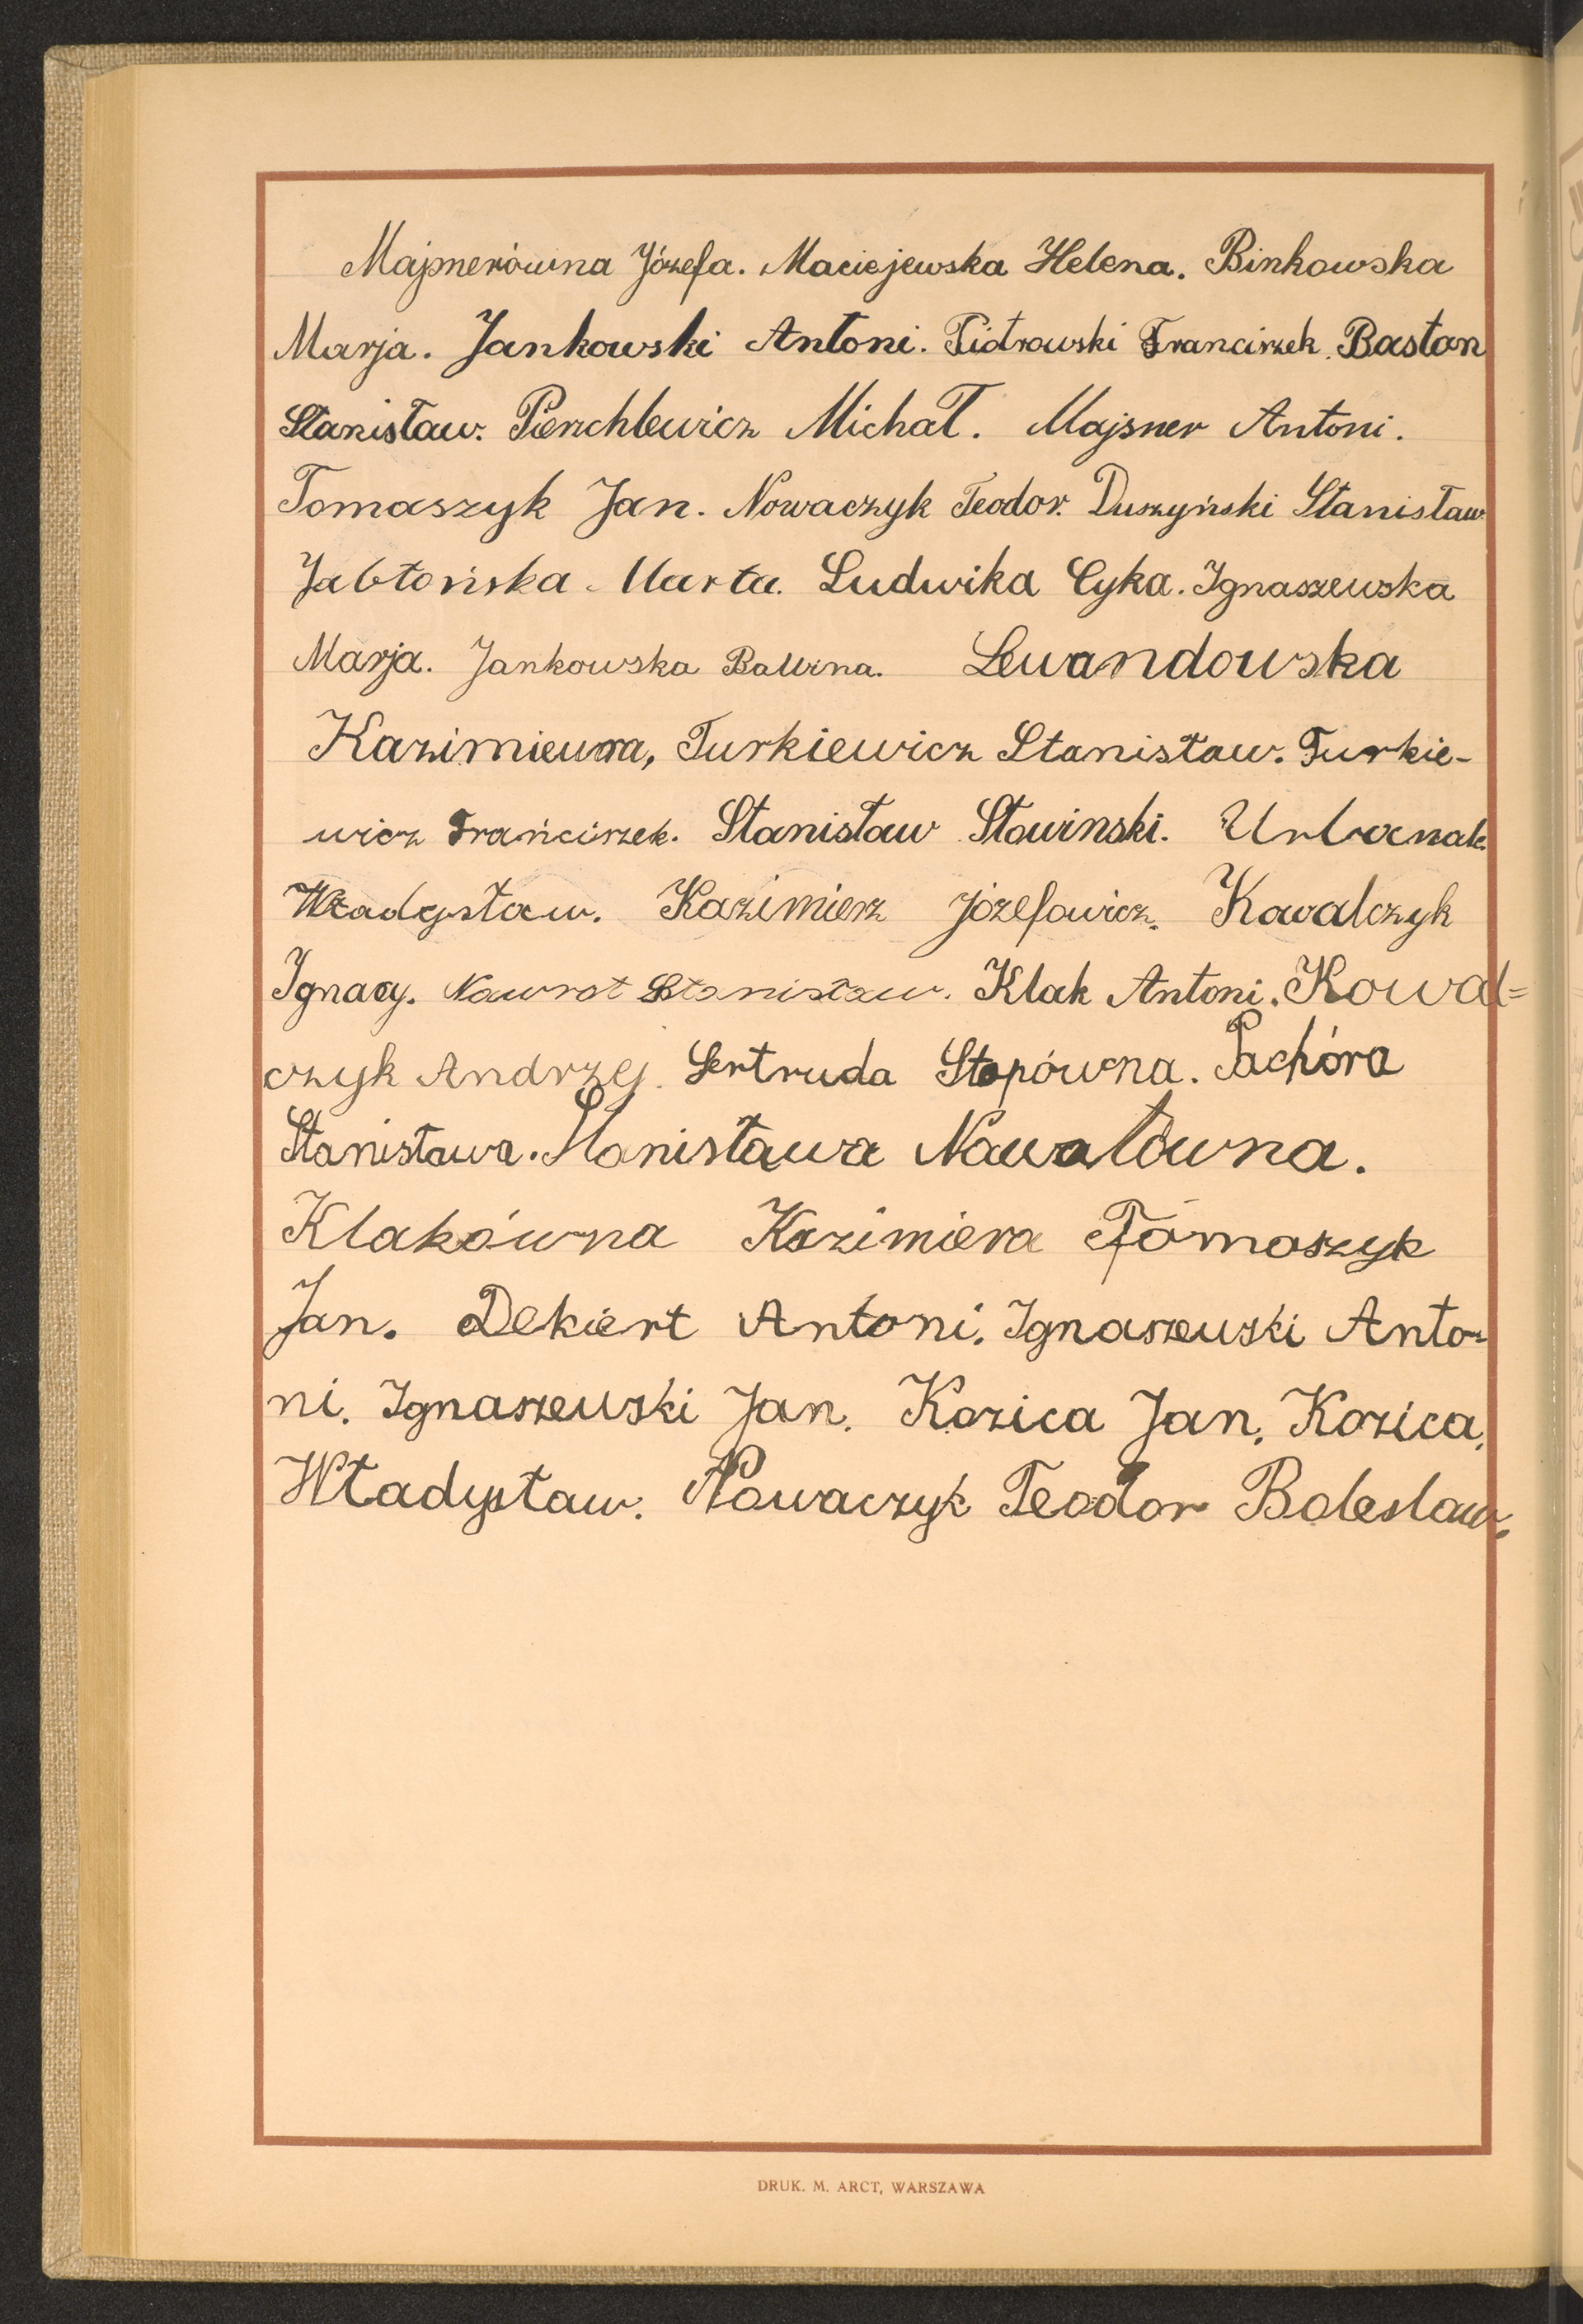 Majsnerówna Józefa. Maciejewska Helena. Binkowska
Marja. Jankowski Antoni. Piotrowski Franciszek. Bastan
Stanisław. Pierzchlewicz Michał. Majsner Antoni.
Tomaszyk Jan. Nowaczyk Teodor. Duszyński Stanisław
Jabłońska Marta. Ludwika Cyka. Ignaszewska
Marja. Jankowska Balbina. Lewandowska
Kazimiewra, Turkiewicz Stanisław. Turkie-
wicz Frańciszek. Stanisław Sławinski. Urbanak.
Władysław. Kazimierz Józefowicz. Kowalczyk
Ignacy. Nawrot Stanisław. Klak Antoni. Kowal=
czyk Andrzej. Gertruda Stopówna. Pachóra
Stanisława. Stanisława Nawałówna.
Klakówna Kazimiera Tomaszyk
Jan. Dekiert Antoni. Ignaszewski Anto-
ni. Ignaszewski Jan. Kozica Jan. Kozica,
Władysław. Nowaczyk Teodor Boleslaw.
DRUK. M. ARCT, WARSZAWA